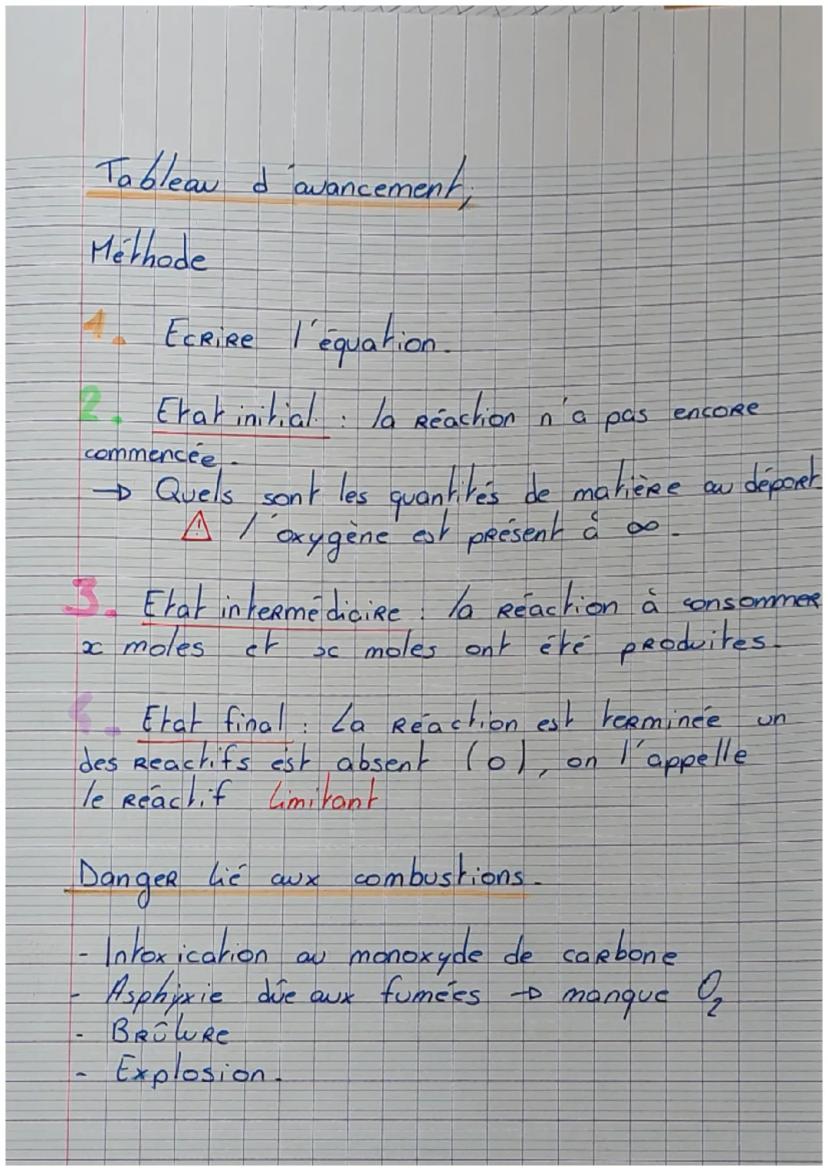 Tableau d'avancement,
Méthode
1. Ecrire l'équation.
2. Etat initial : la réaction n'a pas encore
commencée.
→ Quels sont les quantités de matière au départ
⚠ l'oxygène est présent à ∞.
3. Etat intermédiaire : la réaction à consommer
x moles et x moles ont été produites.
4. Etat final : La réaction est terminée un
des reactifs est absent (0), on l'appelle
le réactif limitant
Danger lié aux combustions.
- Intoxication au monoxyde de carbone
- Asphyxie dûe aux fumées → manque O₂
- Brûlure
- Explosion.